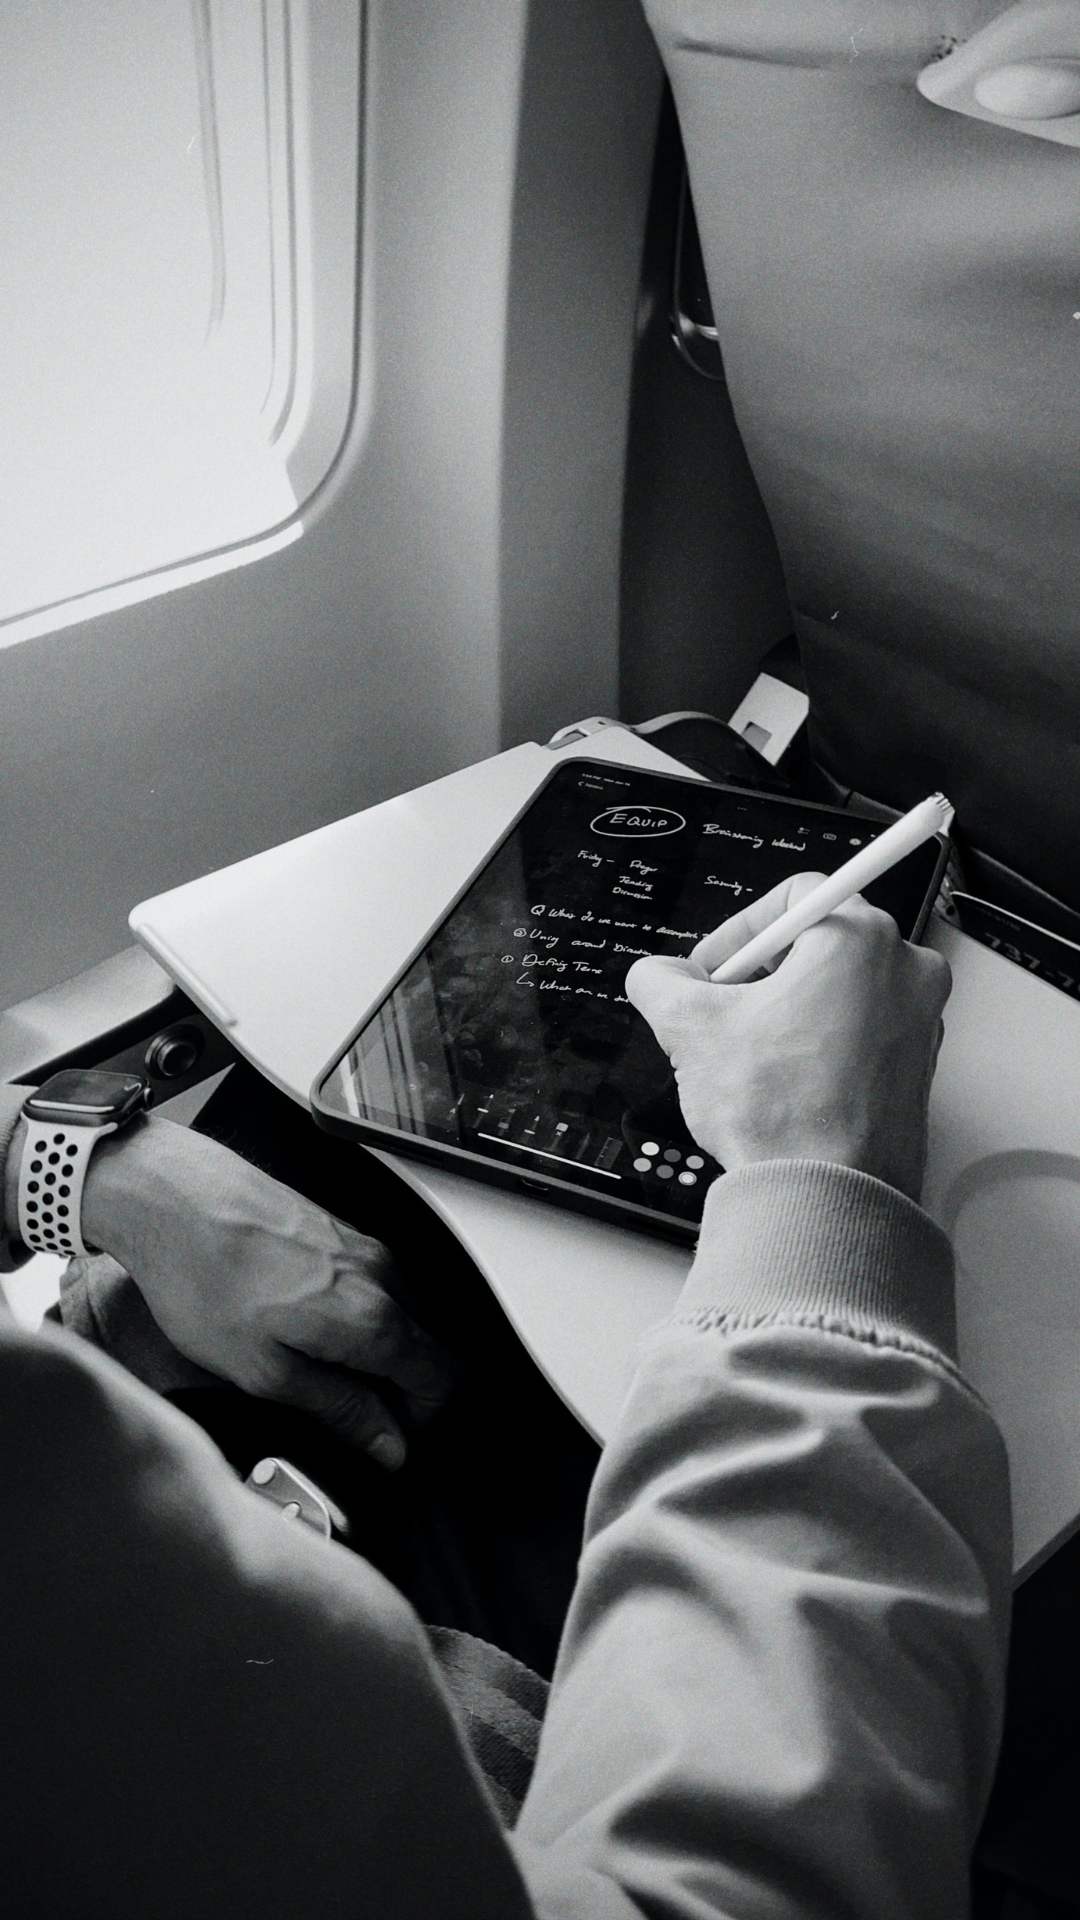 EQUIP Brainstorming Weekend
Friday - Prayer
Teaching
Discussion
Saturday -
Q What do we want to accomplish
② Unity around Direction
① Defining Terms
↳ What are we
737-7